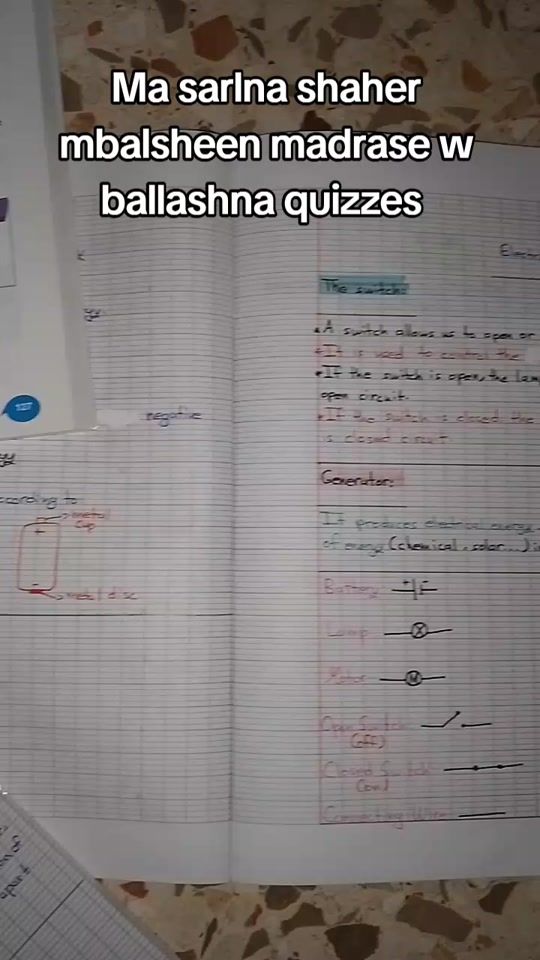 Ma sarlna shaher
mbalsheen madrase w
ballashna quizzes
127
negative
according to
metal
cup
+
-
metal disc
The switch:
A switch allows us to open or
It is used to control the
If the switch is open, the lam
open circuit.
If the switch is closed, the
is closed circuit.
Generator:
It produces electrical energy
of energy (chemical, solar...) i
Battery:
+ -
Lamp:
X
Motor:
M
Open Switch:
(off)
Closed Switch:
(on)
Connecting Wire: